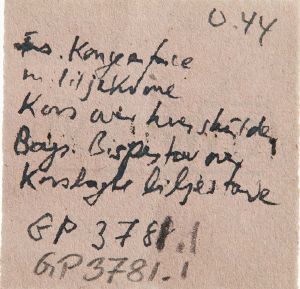 0.44
Fs. Kongeface
m liljekrone
Kors over hver skulder
Bags. Bispestav over
Korslagte liljestave
GP 3781.1
GP 3781.1